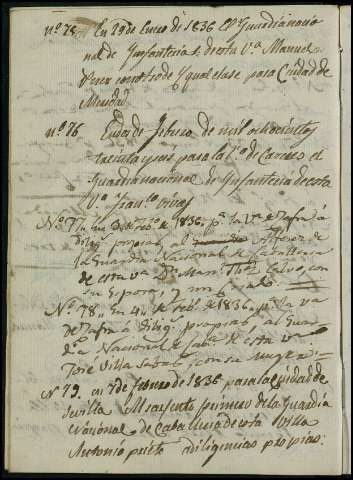 nº 75 En 29 de Enero de 1836 el Guardia nacio
nal de Infanteria de esta Vª Manuel
con otro de Ygual clase para Ciudad de
nº 76 En dos de Febrero de mil ochocientos
treinta y seis para la Vª de Carnes el
Guardia nacional de Infanteria de esta
Vª Franco
Nº 77 en 3 de Febº de 1836, pª la Vª de Zafra á
dilig. propias, al Alferez de
la Guardia Nacional de Caballeria
de esta Vª Dn Manl Calvo, con
su Esposa, y un
Nº 78, En 4 de Febº de 1836, pª la va
de Zafra á dilig. propias, al Guar
dª Nacional de Cabª de esta Vª
José Villa Sabas, con su muger =
Nº 79. en 7 de febrero de 1836 para la ciudad de
Sevilla Al sarjento primero de la Guardia
Nacional de Caballeria de esta Villa
Antonio prieto a diligencias propias.